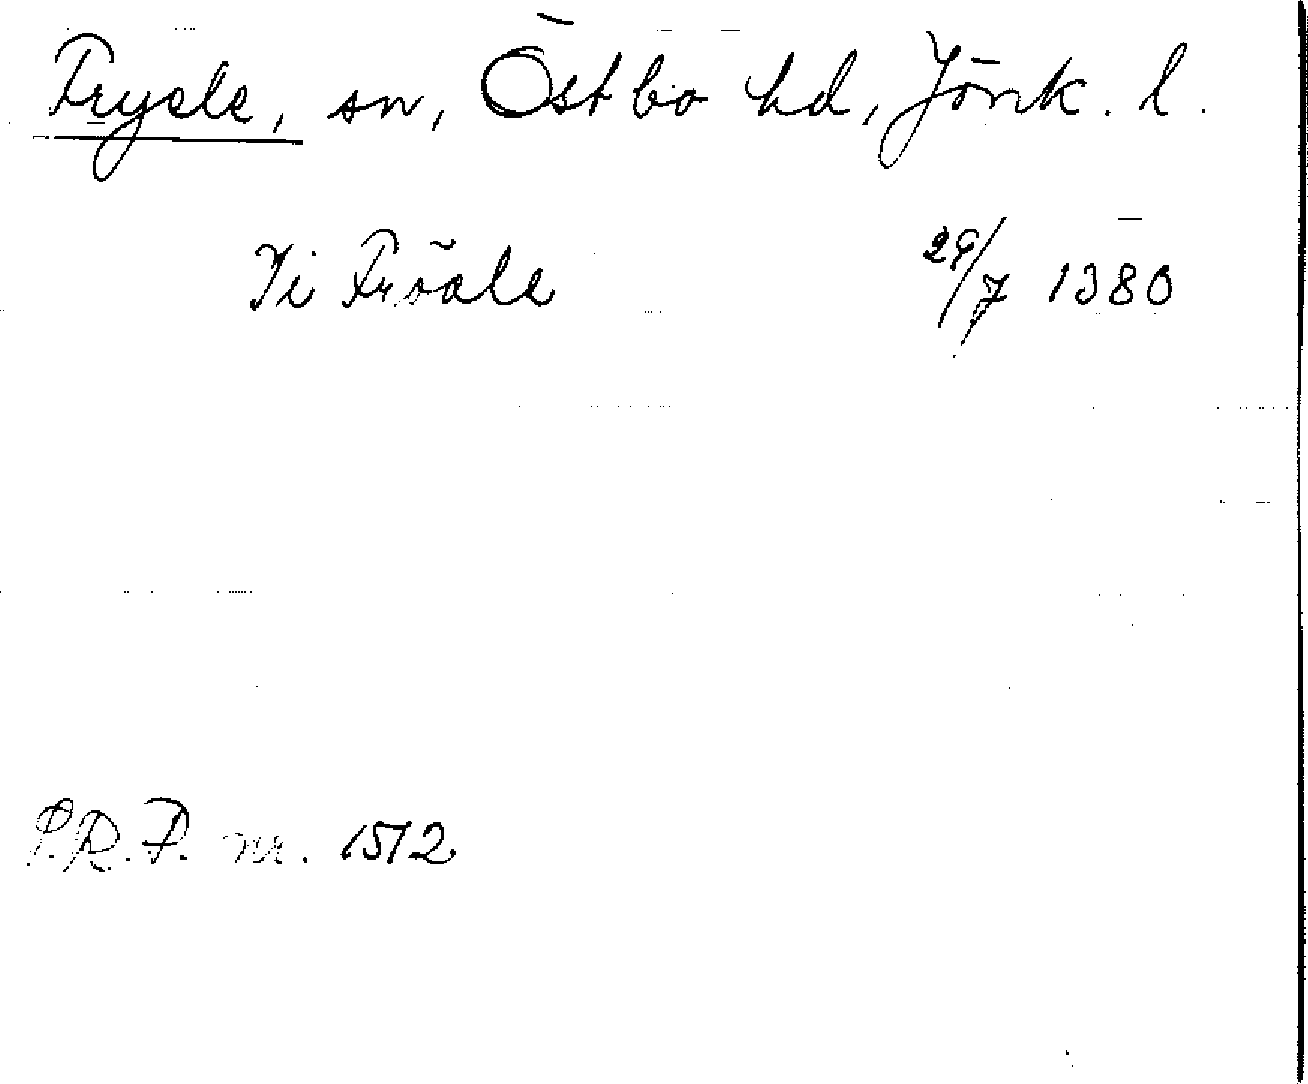 Fryele, sn, Östbo hd, Jönk. l.
Vi Fröale 29/7 1380
S.R.P. nr. 1512